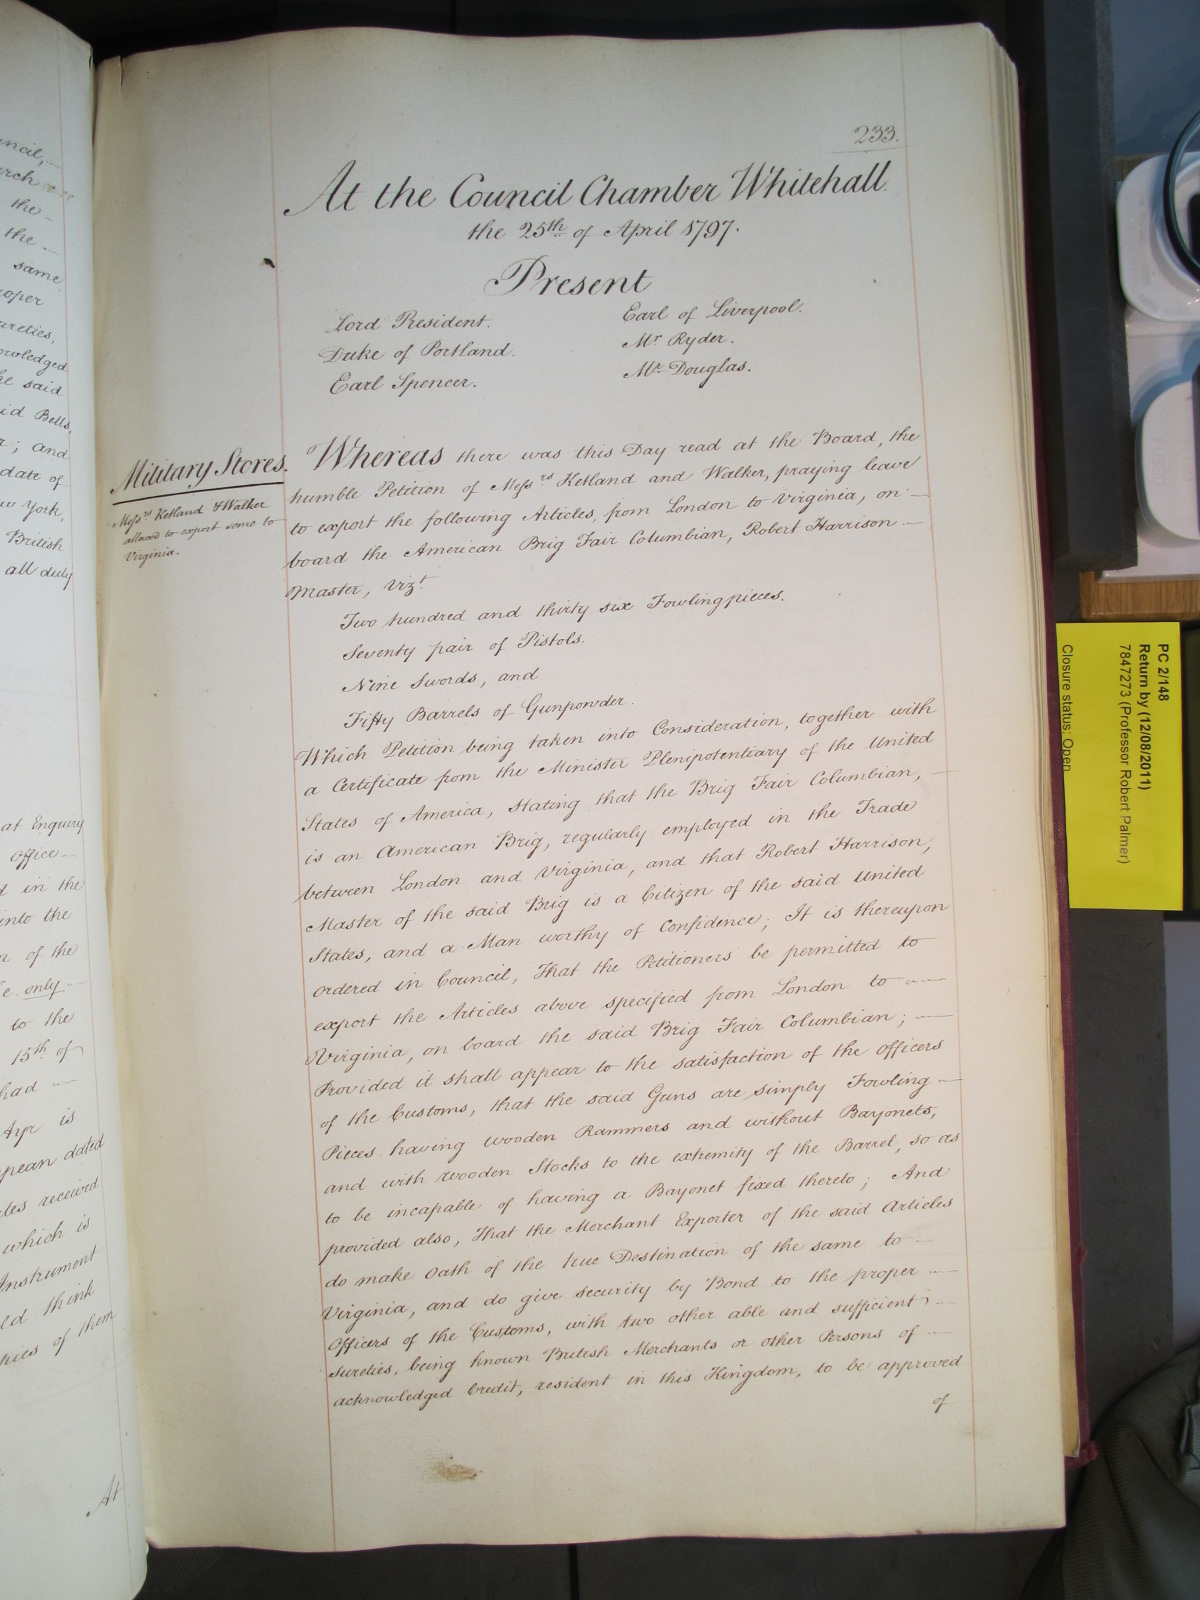 ncil,
rch
the
the
same
oper
ureties,
owledged
he said
id Bells,
r; and
date of
w York,
British
all duty
at Enquiry
office
d in the
into the
n of the
e only
to the
15th of
had
Ayr is
pean dated
tes received
which is
Instrument
ld think
pies of them
At
233.
At the Council Chamber Whitehall
the 25th of April 1797.
Present
Lord President.
Duke of Portland.
Earl Spencer.
Earl of Liverpool.
Mr Ryder.
Mr Douglas.
Military Stores.
Messrs Ketland & Walker
allowed to export some to
Virginia.
Whereas there was this Day read at the Board, the
humble Petition of Messrs Ketland and Walker, praying leave
to export the following Articles, from London to Virginia, on
board the American Brig Fair Columbian, Robert Harrison
Master, Vizt
Two hundred and thirty six Fowlingpieces.
Seventy pair of Pistols.
Nine Swords, and
Fifty Barrels of Gunpowder.
Which Petition being taken into Consideration, together with
a Certificate from the Minister Plenipotentiary of the United
States of America, stating that the Brig Fair Columbian,
is an American Brig, regularly employed in the Trade
between London and Virginia, and that Robert Harrison,
Master of the said Brig is a Citizen of the said United
States, and a Man worthy of Confidence; It is thereupon
ordered in Council, That the Petitioners be permitted to
export the Articles above specified from London to
Virginia, on board the said Brig Fair Columbian;
Provided it shall appear to the satisfaction of the officers
of the Customs, that the said Guns are simply Fowling
Pieces having wooden Rammers and without Bayonets,
and with wooden Stocks to the extremity of the Barrel, so as
to be incapable of having a Bayonet fixed thereto; And
provided also, That the Merchant Exporter of the said Articles
do make Oath of the true Destination of the same to
Virginia, and do give security by Bond to the proper
Officers of the Customs, with two other able and sufficient
sureties, being known British Merchants or other Persons of
acknowledged Credit, resident in this Kingdom, to be approved
of
PC 2/148
Return by (12/08/2011)
7847273 (Professor Robert Palmer)
Closure status: Open